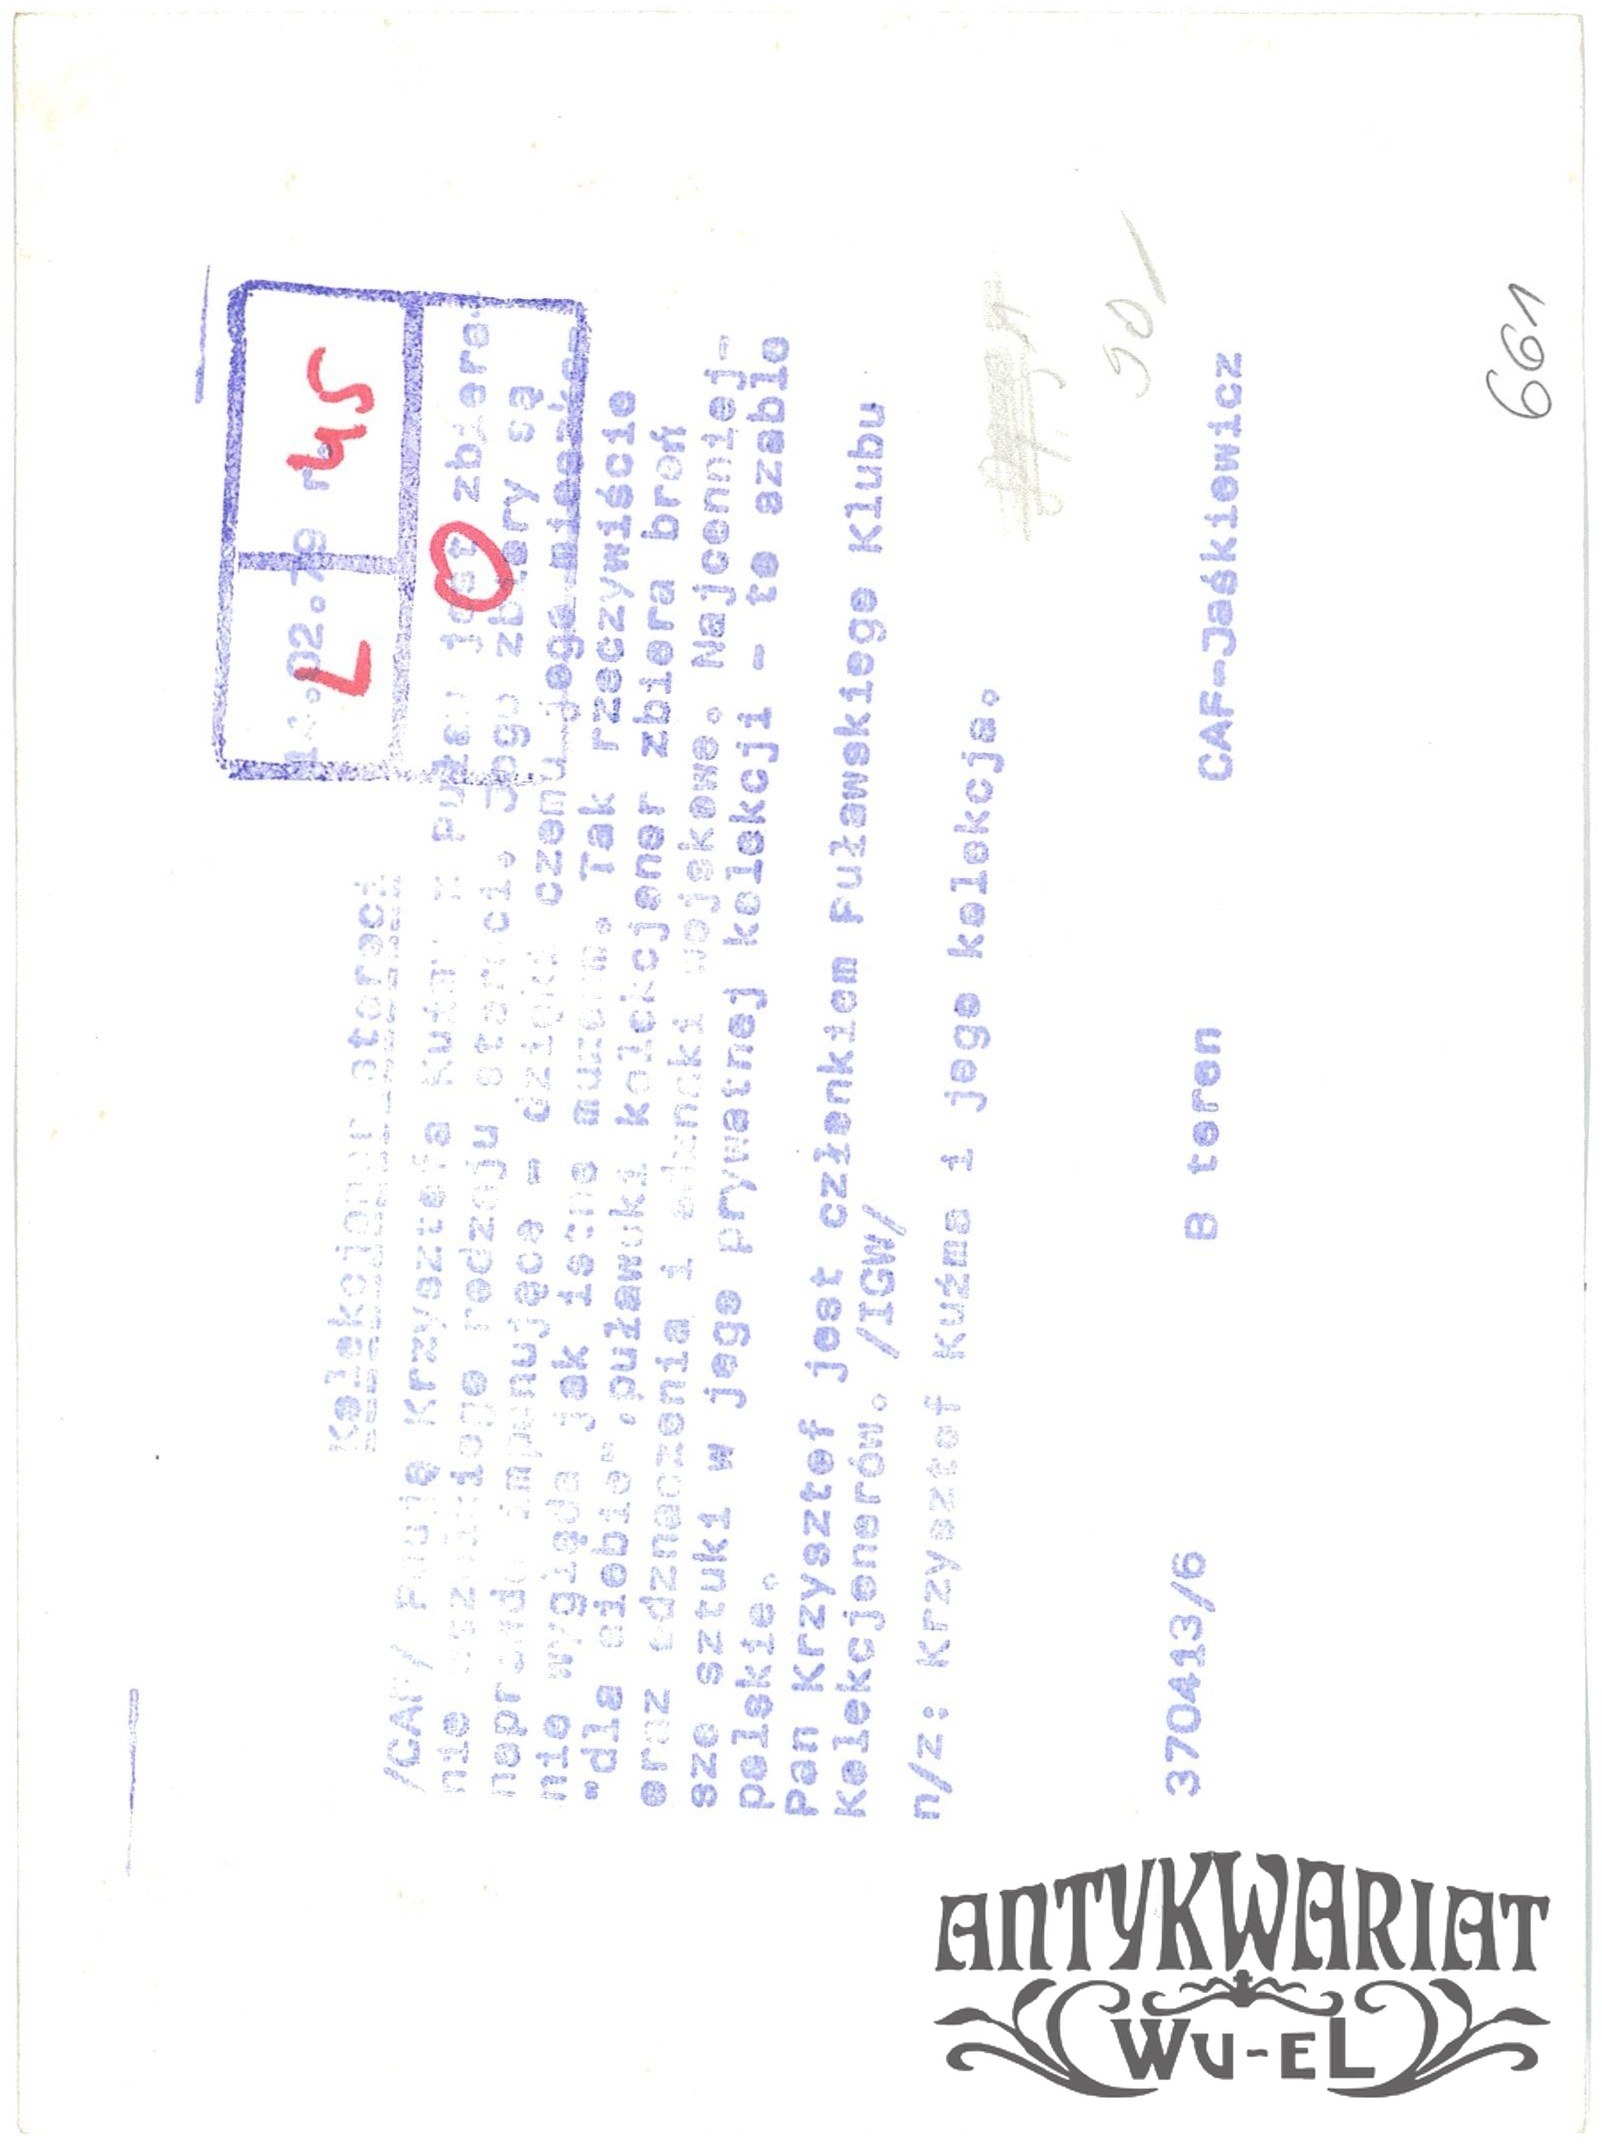 .02.79 r
L
45
O
Kolekcjoner staroci
/CAF/ Pasją Krzysztofa Kuźmy z Puław jest zbiera-
nie wszelkiego rodzaju staroci. Jego zbiory są
naprawdę imponujące - dzięki czemu jego mieszka-
nie wygląda jak istne muzeum. Tak rzeczywiście
"dla siebie" puławski kolekcjoner zbiera broń
oraz odznaczenia i odznaki wojskowe. Najcenniej-
sze sztuki w jego prywatnej kolekcji - to szable
polskie.
Pan Krzysztof jest członkiem Puławskiego Klubu
Kolekcjonerów. /IGW/
n/z: Krzysztof Kuźma i jego kolekcja.
370413/6 B teren CAF-Jaśkiewicz
661
ANTYKWARIAT
WU-EL